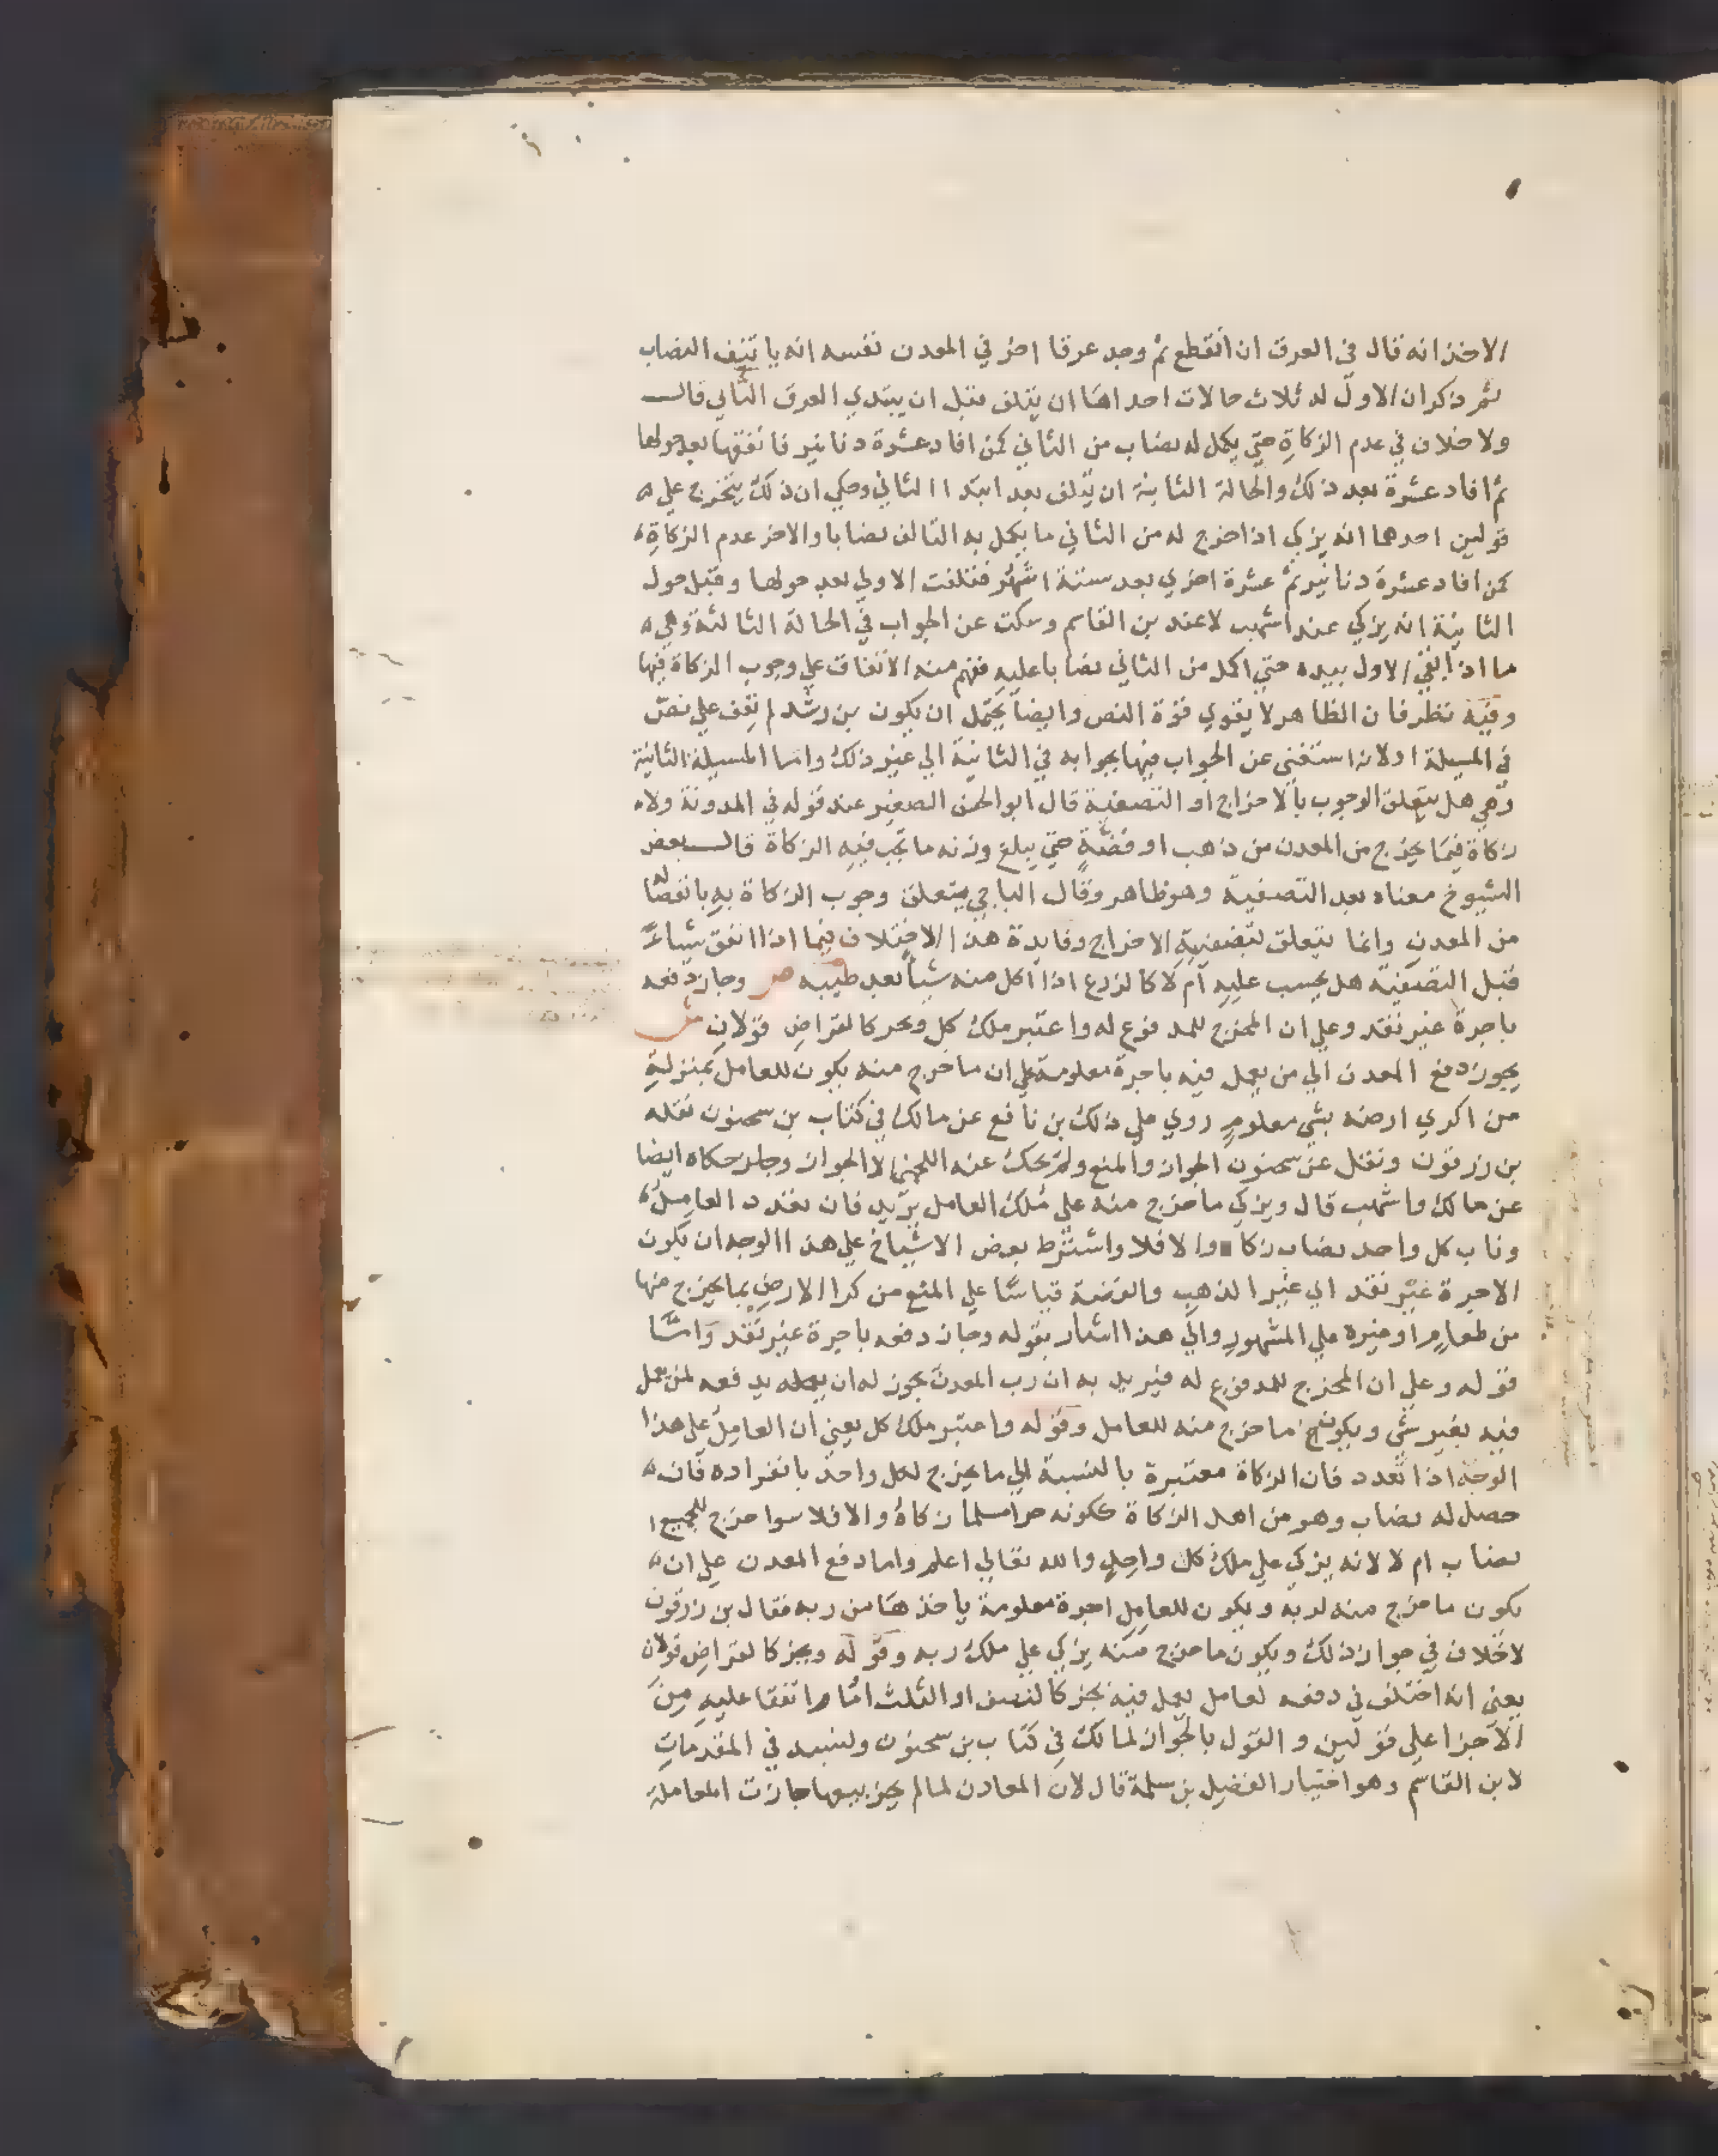 الاخذ انه قال في العرق ان انقطع ثم وجد عرقا اخر في المعدن نفسه انه ياتنف النصاب
ثم ذكر ان الاول له ثلاث حالات احداها ان يتلف قبل ان يبتدي العرق الثاني قال
ولا خلاف في عدم الزكاة حتي يكمل له نصاب من الثاني كمن افاد عشرة دنانير فانفقها بعد حولها
ثم افاد عشرة بعد ذلك والحالة الثانية ان يتلف بعد ابتدا الثاني وحكي ان ذلك يتخرج علي
قولين احدهما انه يزكي اذا خرج له من الثاني ما يكمل به التالف نصابا والاخر عدم الزكاة
كمن افاد عشرة دنانير ثم عشرة اخري بعد ستة اشهر فتلفت الاولي بعد حولها وقبل حول
الثانية انه يزكي عند اشهب لا عند بن القاسم وسكت عن الجواب في الحالة الثالثة وهي
ما اذا بقي الاول بيده حتي اكمل من الثاني نصابا عليه ففهم منه الاتفاق علي وجوب الزكاة فيها
وفيه نظر فان الظاهر لا يقوي قوة النص وايضا يحتمل ان يكون بن رشد لم يقف علي نص
في المسيلة اولانه استغني عن الجواب فيها بجوابه في الثانية الي غير ذلك واما المسيلة الثانية
وهي هل يتعلق الوجوب بالاخراج او التصفية قال ابو الحسن الصغير عند قوله في المدونة ولا
زكاة فيما يخرج من المعدن من ذهب او فضة حتي يبلغ وزنه ما تجب فيه الزكاة قال بعض
الشيوخ معناه بعد التصفية وهو ظاهر وقال الباجي يتعلق وجوب الزكاة به بانفصاله
من المعدن وانما يتعلق بتصفيته الاخراج وفايدة هذا الاختلاف فيما اذا انفق شياء
قبل التصفية هل يحسب عليه ام لا كالزرع اذا اكل منه شيأ بعد طيبه ص وجاز دفعه
باجرة غير نقد وعلي ان المخرج للمدفوع له واعتبر ملك كل وبجز كالقراض قولان ش
يجوز دفع المعدن الي من يعمل فيه باجرة معلومة علي ان ما خرج منه يكون للعامل بمنزلة
من اكري ارضه بشي معلوم روي علي ذلك بن نافع عن مالك في كتاب بن سحنون نقله
بن زرقون ونقل عن سحنون الجواز والمنع ولم يحك عنه اللخمي الا الجواز وحكاه ايضا
عن مالك واشهب قال ويزكي ما خرج منه علي ملك العامل يريد فان تعدد العامل
وناب كل واحد نصاب زكا والا فلا واشترط بعض الاشياخ علي هذا الوجه ان يكون
الاجرة غير نقد اي غير الذهب والفضة قياسا علي المنع من كرا الارض بما يخرج منها
من طعام او غيره علي المشهور والي هذا اشار بقوله وجاز دفعه باجرة غير نقد واما
قوله وعلي ان المخرج للمدفوع له فيريد به ان رب المعدن يجوز له ان يدفعه لمن يعمل
فيه بغير شي ويكون ما خرج منه للعامل وقوله واعتبر ملك كل يعني ان العامل علي هذا
الوجه اذا تعدد فان الزكاة معتبرة بالنسبة الي ما يخرج لكل واحد بانفراده فان
حصل له نصاب وهو من اهل الزكاة ككونه حرا مسلما زكاه والا فلا سوا خرج للجميع
نصاب ام لا لانه يزكي علي ملك كل واحد والله تعالي اعلم واما دفع المعدن علي ان
يكون ما خرج منه لربه ويكون للعامل اجرة معلومة ياخذها من ربه فقال بن زرقون
لا خلاف في جواز ذلك ويكون ما خرج منه يزكي علي ملك ربه وقوله وبجز كالقراض قولان
يعني انه اختلف في دفعه لعامل يعمل فيه بجز كالنصف او الثلث او ما اتفقا عليه من
الاجزا علي قولين والقول بالجواز لمالك في كتاب بن سحنون ونسبه في المقدمات
لابن القاسم وهو اختيار الفضيل بن سلمة قال لان المعادن لما لم يجز بيعها جازت المعاملة